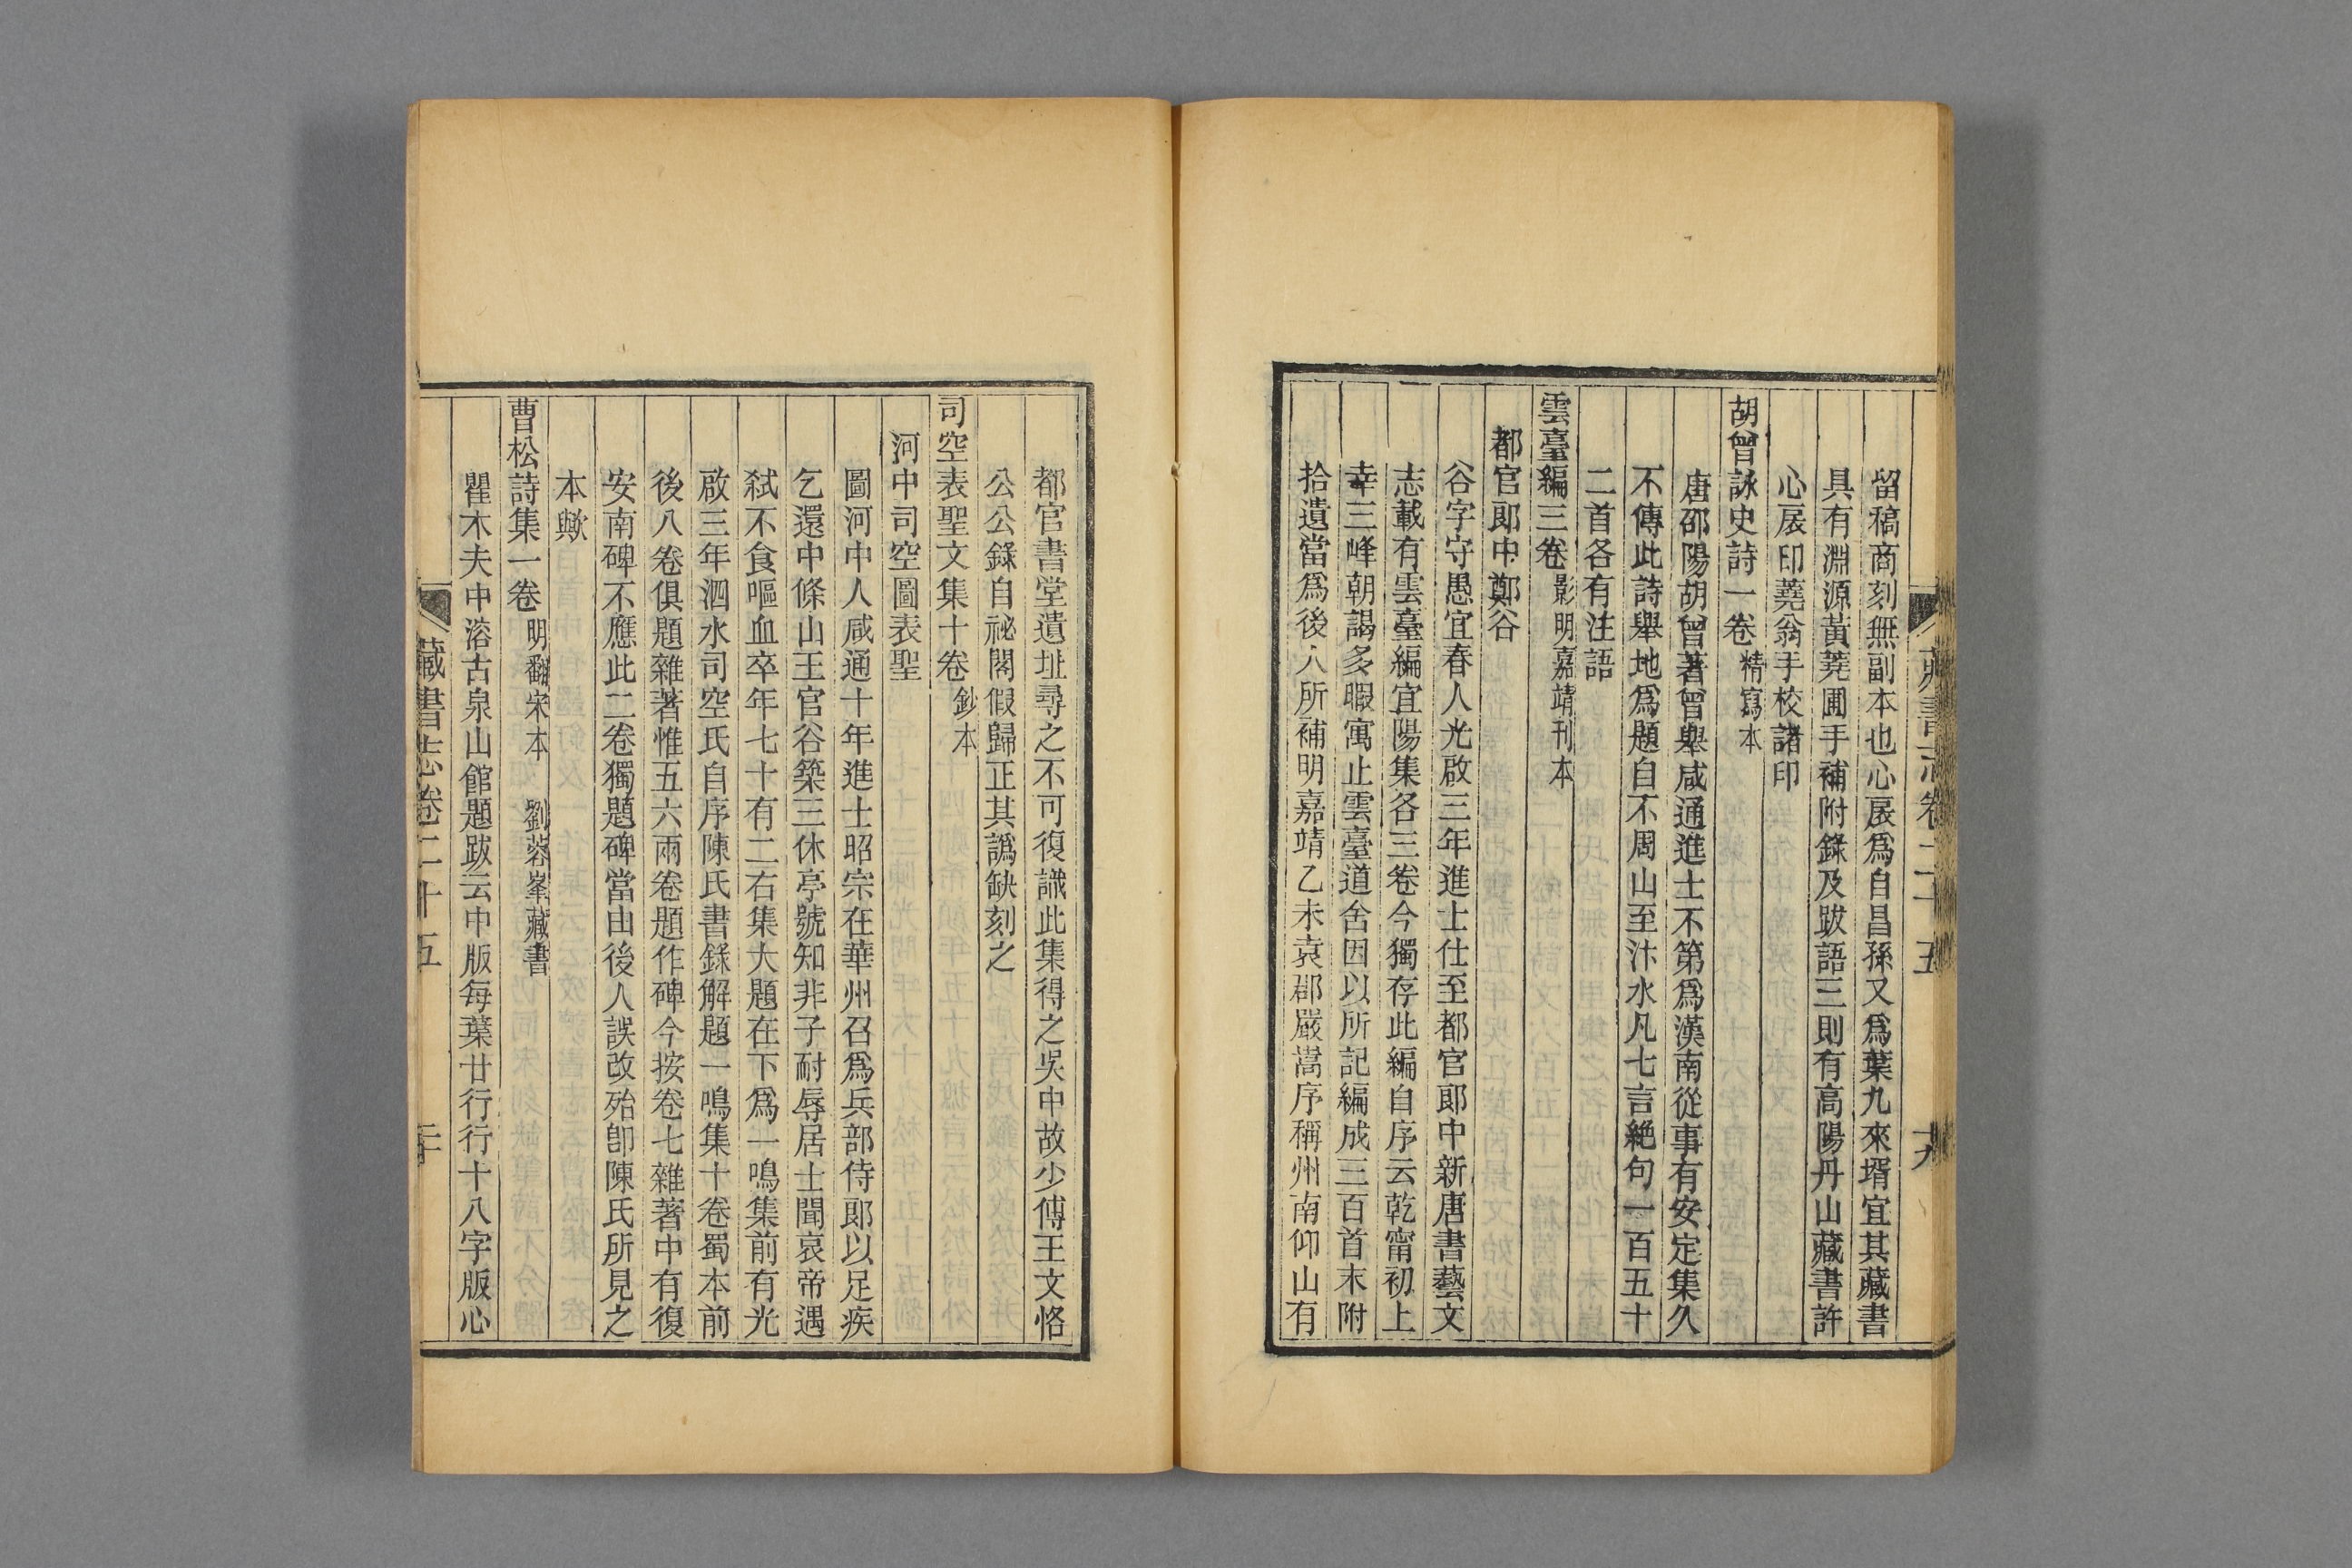 藏書志卷二十五
十九
留稿商刻無副本也心扆爲自昌孫又爲葉九來壻宜其藏書
具有淵源黃蕘圃手補附錄及跋語三則有高陽丹山藏書許
心扆印蕘翁手校諸印
胡曾詠史詩一卷 精寫本
唐邵陽胡曾著曾舉咸通進士不第爲漢南從事有安定集久
不傳此詩舉地爲題自不周山至汴水凡七言絕句一百五十
二首各有注語
雲臺編三卷 影明嘉靖刊本
都官郎中鄭谷
谷字守愚宜春人光啟三年進士仕至都官郎中新唐書藝文
志載有雲臺編宜陽集各三卷今獨存此編自序云乾甯初上
幸三峰朝謁多暇寓止雲臺道舍因以所記編成三百首末附
拾遺當爲後人所補明嘉靖乙未袁郡嚴嵩序稱州南仰山有
都官書堂遺址尋之不可復識此集得之吳中故少傅王文恪
公公錄自祕閣假歸正其譌缺刻之
司空表聖文集十卷 鈔本
河中司空圖表聖
圖河中人咸通十年進士昭宗在華州召爲兵部侍郎以足疾
乞還中條山王官谷築三休亭號知非子耐辱居士聞哀帝遇
弒不食嘔血卒年七十有二右集大題在下爲一鳴集前有光
啟三年泗水司空氏自序陳氏書錄解題一鳴集十卷蜀本前
後八卷俱題雜著惟五六兩卷題作碑今按卷七雜著中有復
安南碑不應此二卷獨題碑當由後人誤改殆卽陳氏所見之
本歟
曹松詩集一卷 明翻宋本 劉蓉峯藏書
瞿木夫中溶古泉山館題跋云中版每葉廿行行十八字版心
藏書志卷二十五
二十